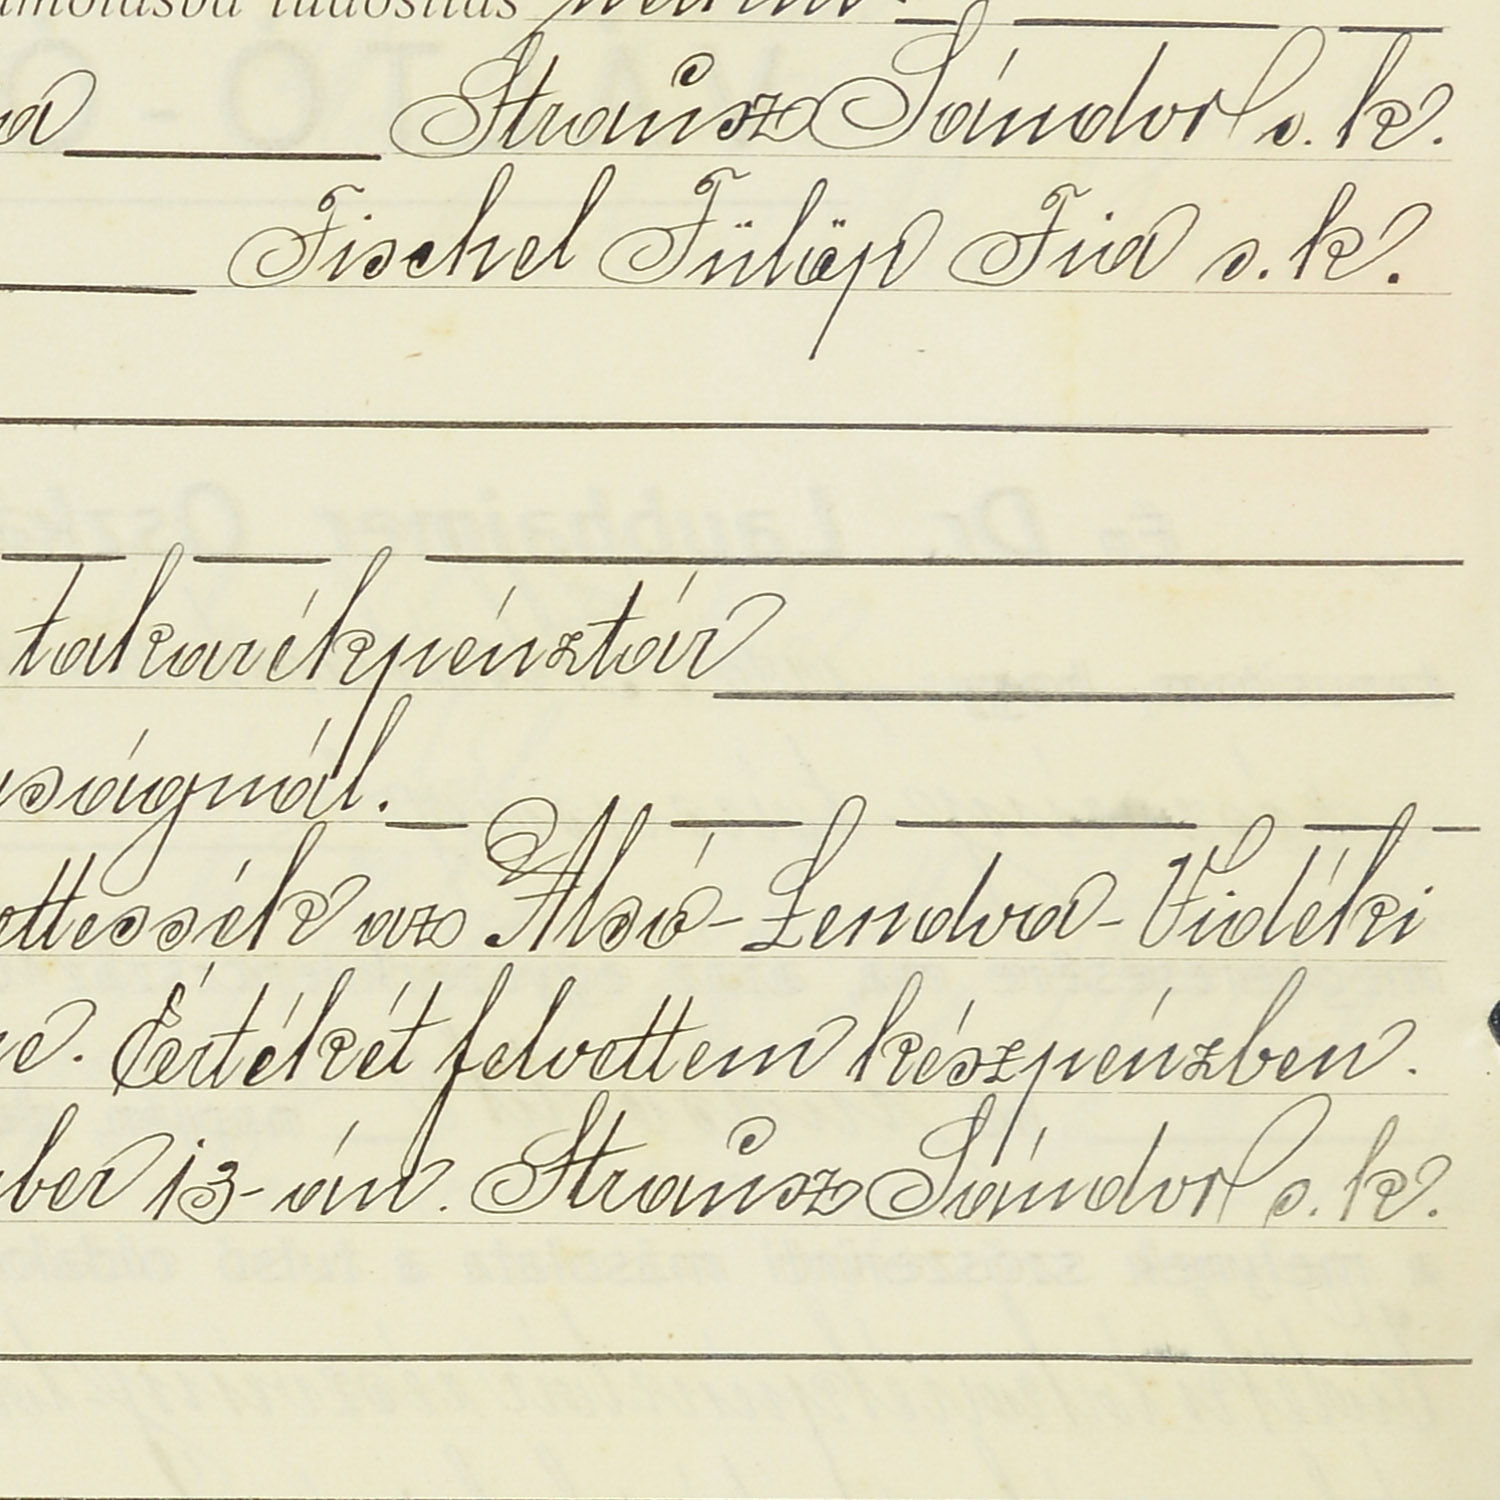 számolásba tudósítás nélkül.
Strausz Sándor s. k.
Fischel Fülöp Fia s. k.
takarékpénztár
ságnál.
ttessék az Alsó-Lendva-Vidéki
Értékét felvettem készpénzben.
ber 13-án. Strausz Sándor s. k.